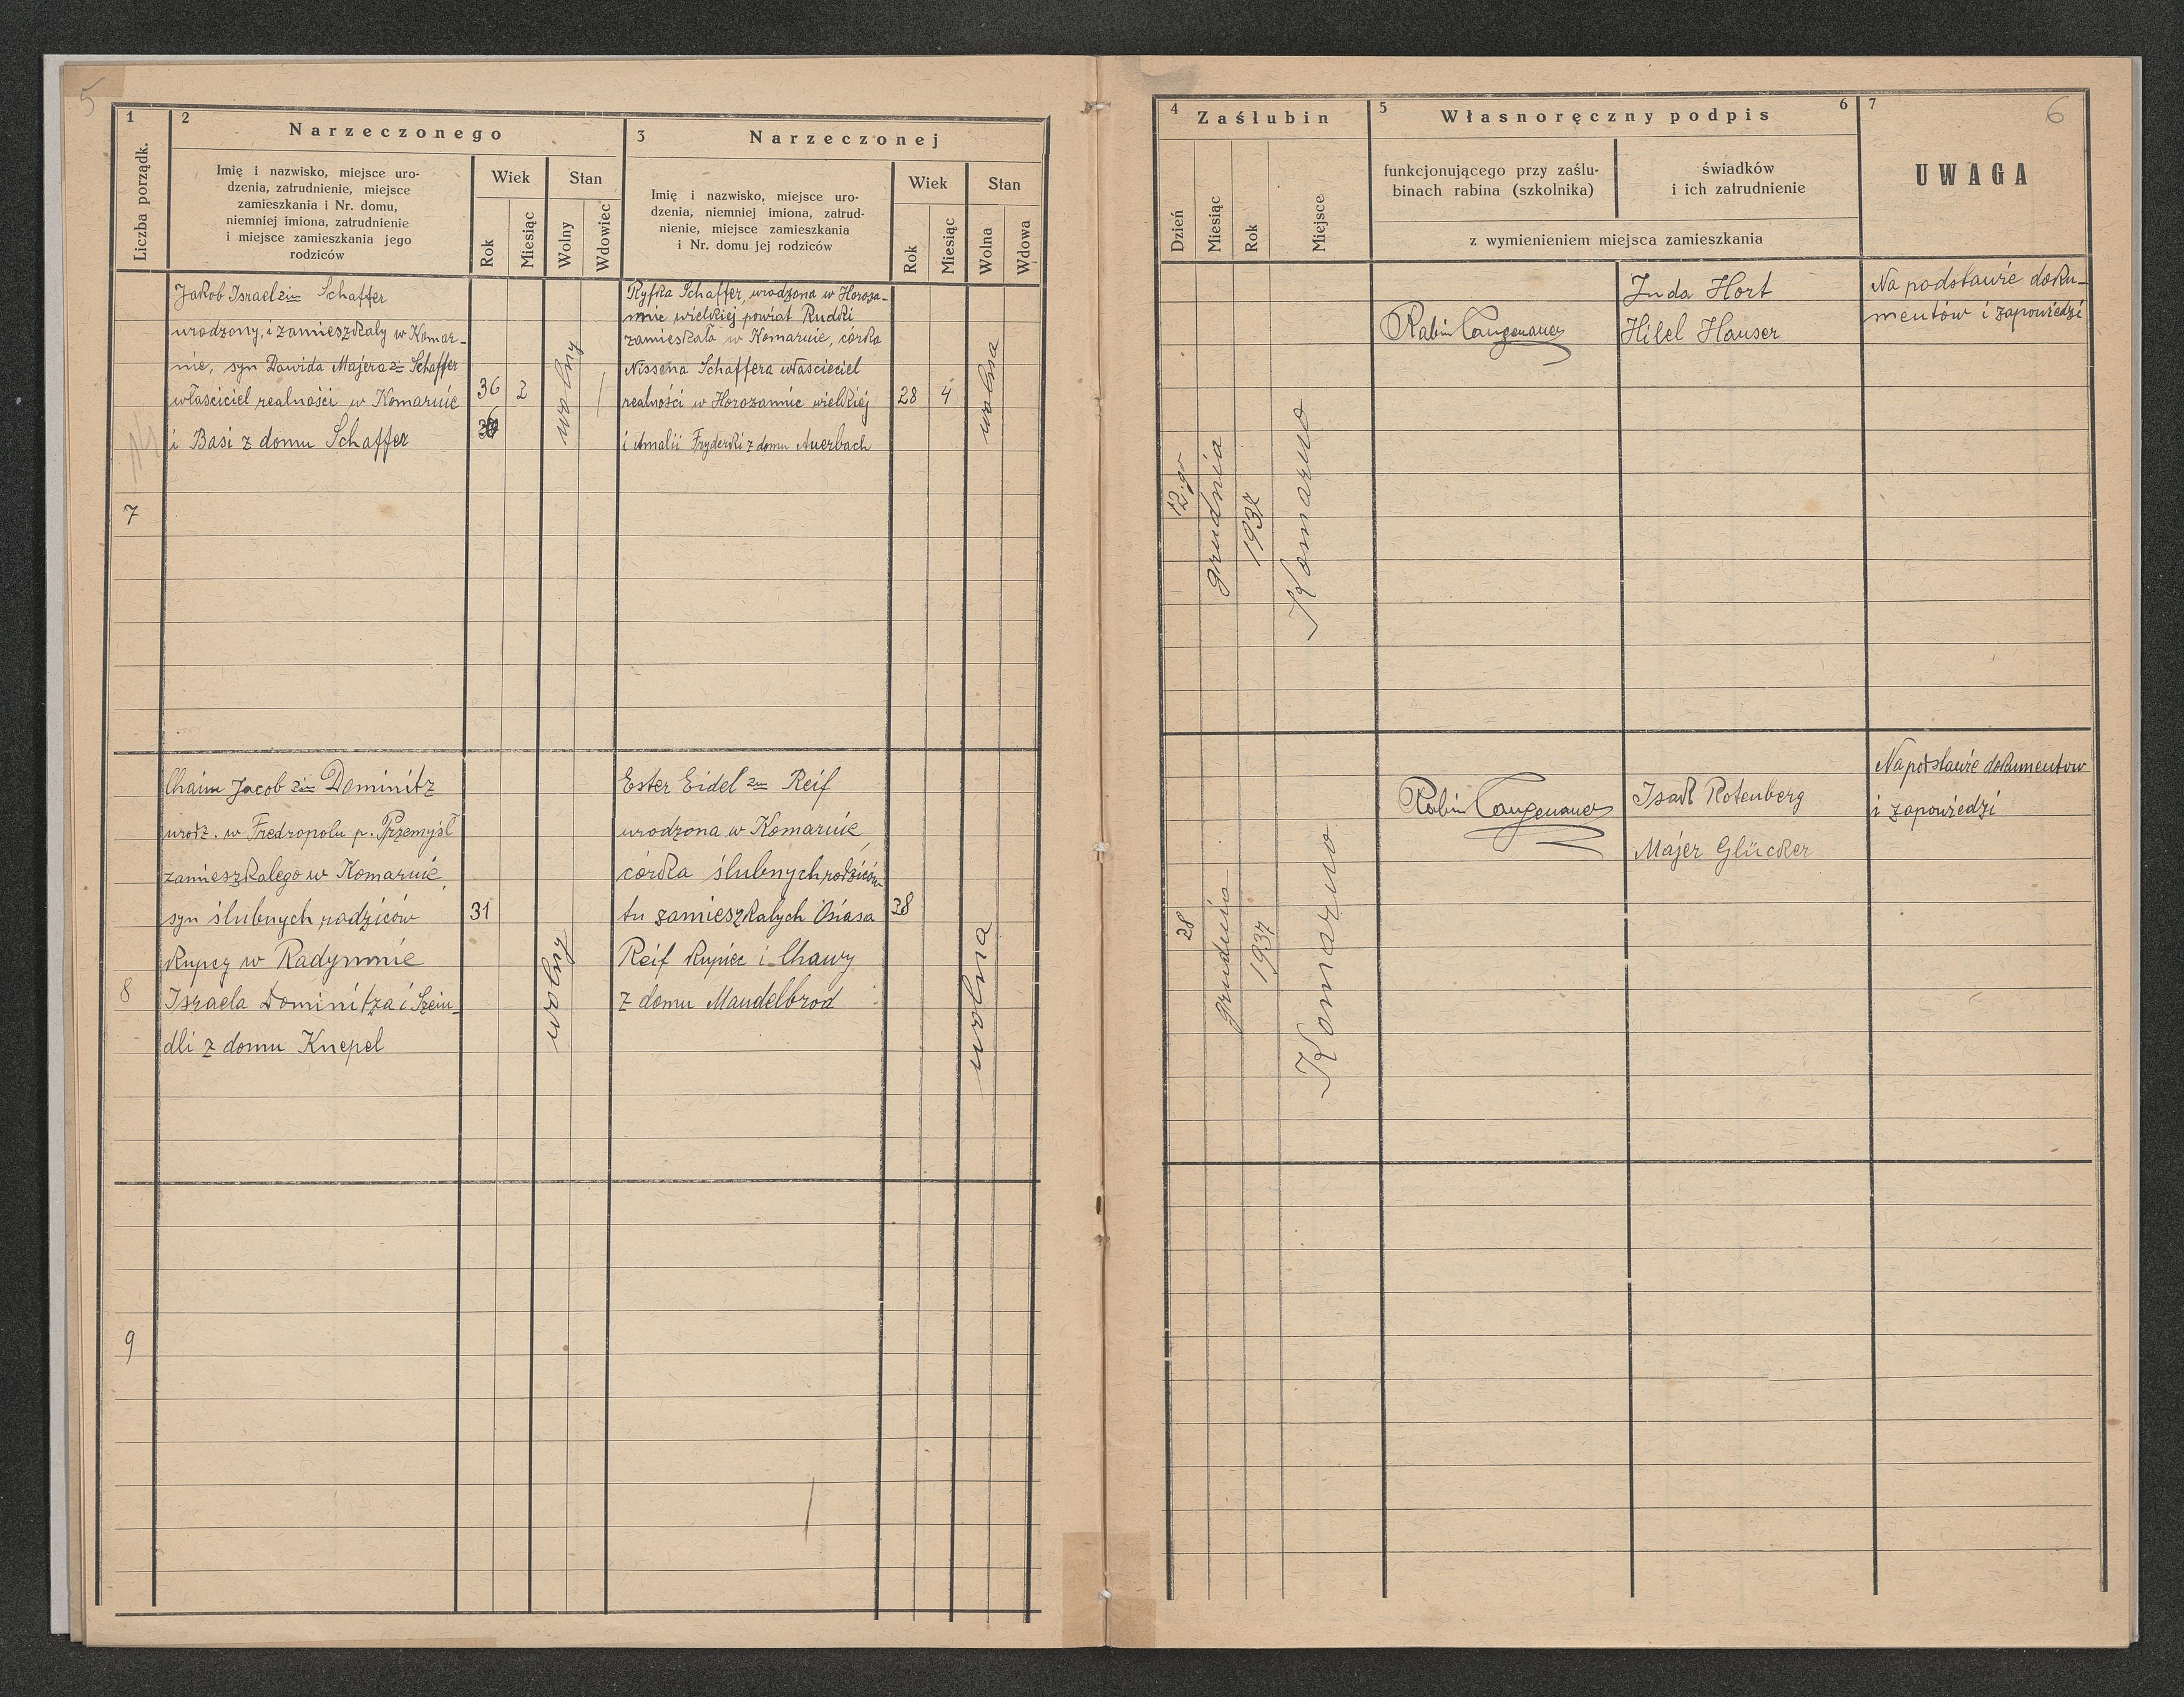 5
1
Liczba porządk.
2
Narzeczonego
Imię i nazwisko, miejsce uro-
dzenia, zatrudnienie, miejsce
zamieszkania i Nr. domu,
niemniej imiona, zatrudnienie
i miejsce zamieszkania jego
rodziców
Wiek
Rok
Miesiąc
Stan
Wolny
Wdowiec
3
Narzeczonej
Imię i nazwisko, miejsce uro-
dzenia, niemniej imiona, zatrud-
nienie, miejsce zamieszkania
i Nr. domu jej rodziców
Wiek
Rok
Miesiąc
Stan
Wolna
Wdowa
4
Zaślubin
Dzień
Miesiąc
Rok
Miejsce
5
Własnoręczny podpis
6
funkcjonującego przy zaślu-
binach rabina (szkolnika)
świadków
i ich zatrudnienie
z wymienieniem miejsca zamieszkania
7
UWAGA
6
7
Jakob Israel zim Schaffer
urodzony, i zamieszkały w Komar-
nie, syn Dawida Majera zim Schaffer
właściciel realności w Komarnie
i Basi z domu Schaffer
36
2
wolny
Ryfka Schaffer, urodzona w Horoża-
nnie wielkiej powiat Rudki
zamieskała w Komarnie, córka
Nissena Schaffera właściciel
realności w Horozannie wielkiej
i Amalii Fryderki z domu Auerbach
28
4
wolna
12.go
grudnia
1937
Komarno
Rabin Langenauer
Juda Hort
Hilel Hauser
Na podstawie doku-
mentów i zapowiedzi
8
Chaim Jacob zim Dominitz
urodz. w Fredropolu p. Przemyśl
zamieszkałego w Komarnie
syn ślubnych rodziców
kupcy w Radymnie
Israela Dominitza i Szein-
dli z domu Knepel
31
wolny
Ester Eidel zim Reif
urodzona w Komarnie,
córka ślubnych rodziców
tu zamieszkałych Osiasa
Reif kupiec i Chawy
z domu Mandelbrod
28
wolna
28
grudnia
1937
Komarno
Rabin Langenauer
Isak Rotenberg
Majer Glücker
Na podstawie dokumentow
i zapowiedzi
9